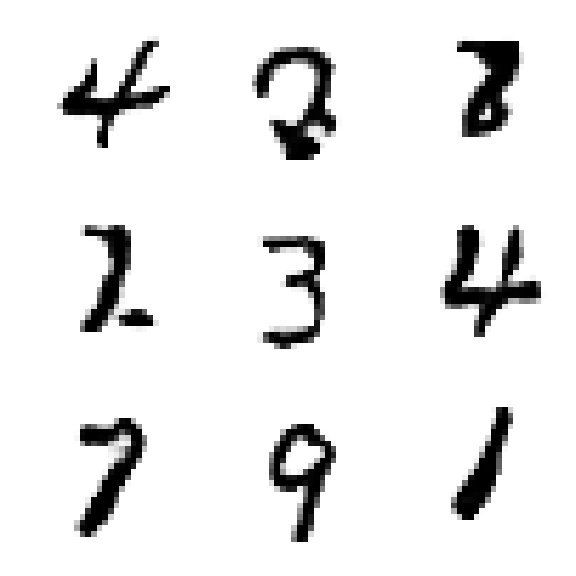 4 2 8
2 3 4
7 9 1